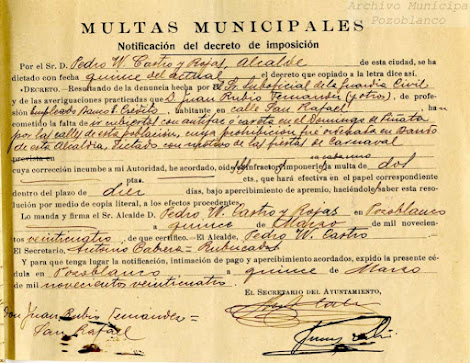 Archivo Municipa
Pozoblanco
MULTAS MUNICIPALES
Notificación del decreto de imposición
Por el Sr. D. Pedro W. Castro y Rojas, Alcalde de esta ciudad, se ha
dictado con fecha quince del actual el decreto que copiado a la letra dice así,
«DECRETO.—Resultando de la denuncia hecha por el Sr. Suboficial de la Guardia Civil
y de las averiguaciones practicadas que D. Juan Rubio Fernandez (y otros), de profesión
empleado Banco E. Crédito, habitante en calle San Rafael, ha
cometido la falta de ir cubierto con antifaz o careta en el Domingo de Piñata
por las calles de esta población, cuya prohibición fue ordenada en Bando
de esta Alcaldía, dictado con motivo de las fiestas de Carnaval
prevista en
cuya corrección incumbe a mi Autoridad, he acordado, oído infractor, imponerle la multa de dos
pesetas, que hará efectiva en el papel correspondiente
dentro del plazo de diez días, bajo apercibimiento de apremio, haciéndole saber esta
resolución por medio de copia literal, a los efectos procedentes.
Lo manda y firma el Sr. Alcalde D. Pedro W. Castro y Rojas en Pozoblanco
a quince de Marzo de mil novecientos
veinticuatro, de que certifico.—El Alcalde, Pedro W. Castro
El Secretario.—Antonio Cabrera = Rubricados
Y para que tenga lugar la notificación, intimación de pago y apercibimiento acordados, expido la presente cédula
en Pozoblanco a quince de Marzo de mil
novecientos veinticuatro.
EL SECRETARIO DEL AYUNTAMIENTO,
Don Juan Rubio Fernandez =
San Rafael